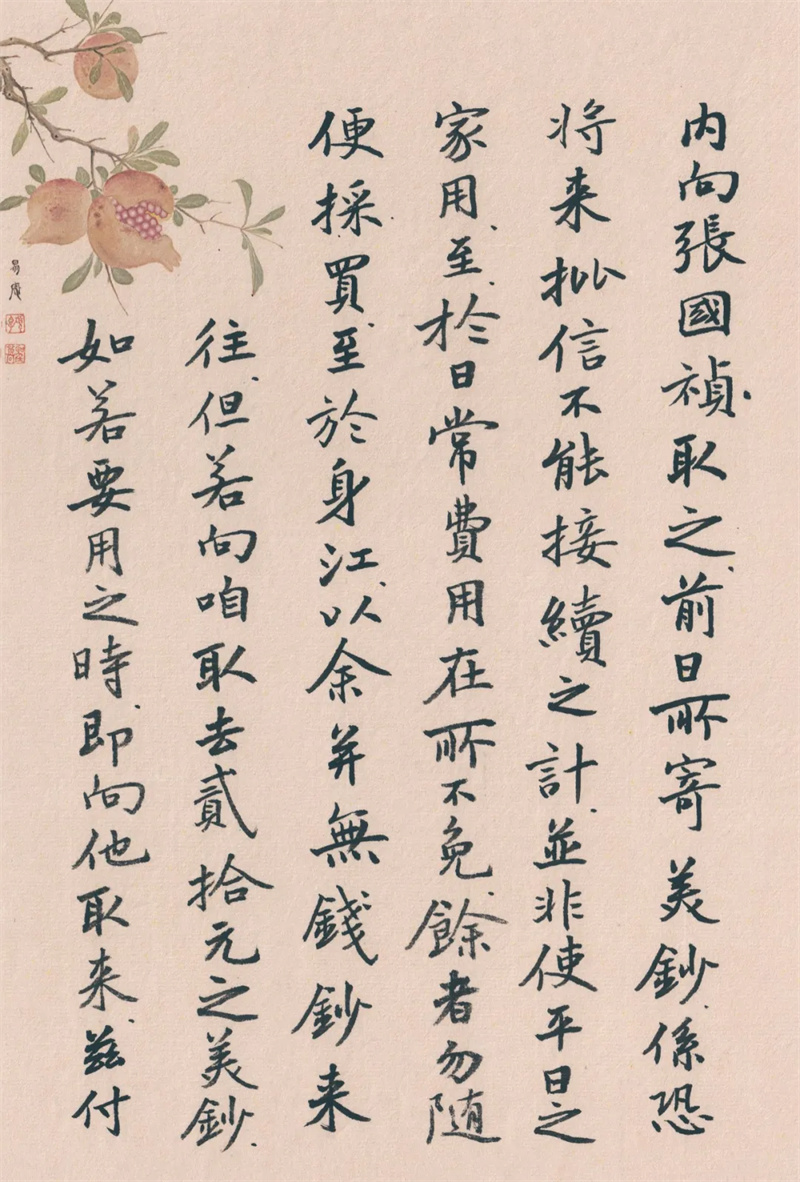 內向張國禎取之前日所寄美鈔係恐
将来批信不能接續之計並非使平日之
家用至於日常費用在所不免餘者勿随
便採買至於身江以余并無錢鈔来
往但若向咱取去貳拾元之美鈔
如若要用之時即向他取来茲付